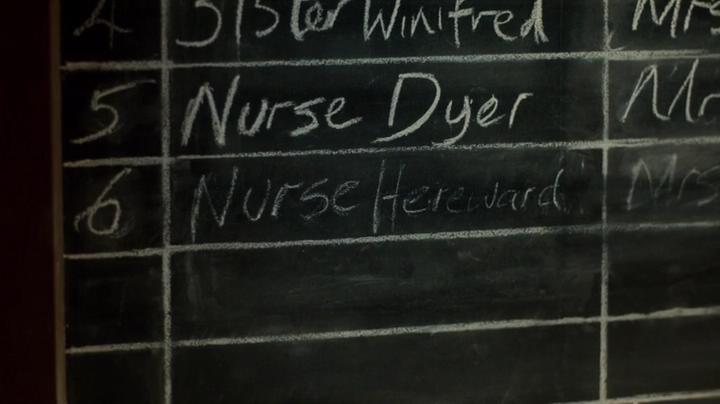 4 Sister Winifred Mrs
5 Nurse Dyer Mr
6 Nurse Hereward Mrs